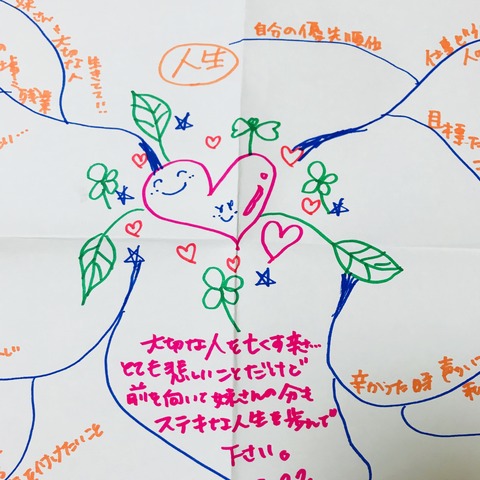 妹さん
大切な人
生きてて!!
残業
人生
自分の優先順位
仕事
人の
目標
大切な人を亡くす辛さ…
とても悲しいことだけど
前を向いて妹さんの分も
ステキな人生を歩んで
下さい。
辛かった時
声かけ